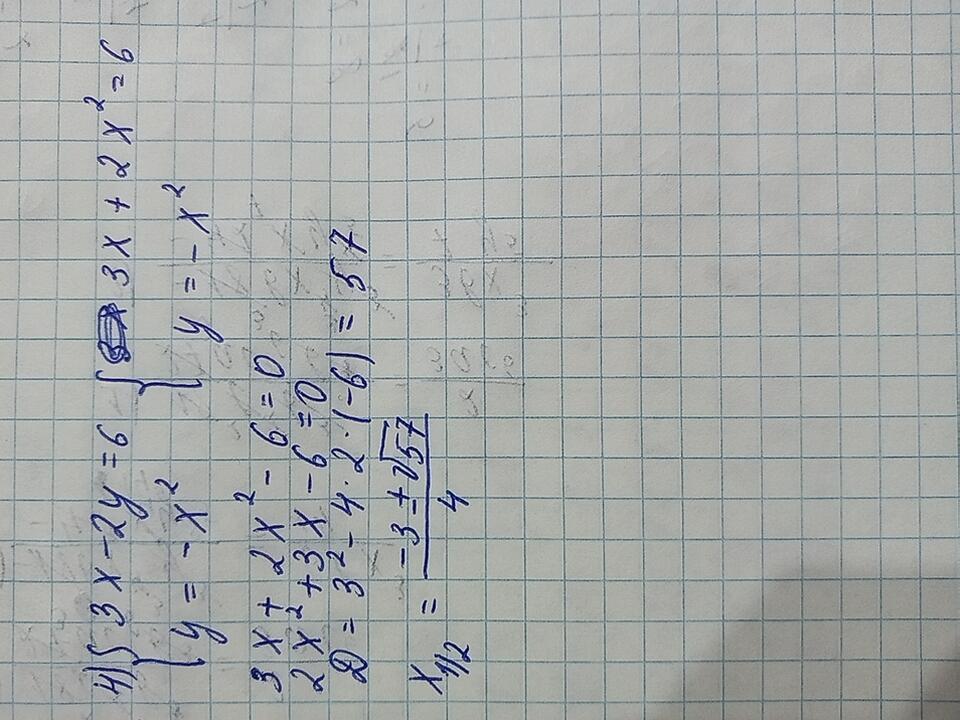 4) { 3x - 2y = 6 { 3x + 2x² = 6
{ y = -x² { y = -x²
3x + 2x² - 6 = 0
2x² + 3x - 6 = 0
D = 3² - 4·2·(-6) = 57
x₁/₂ = (-3 ± √57)/4